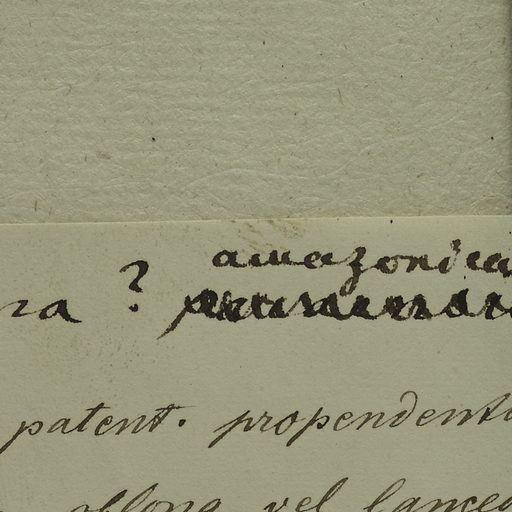 amazonica
ra ?
patent. propendenti
oblong vel lanceo